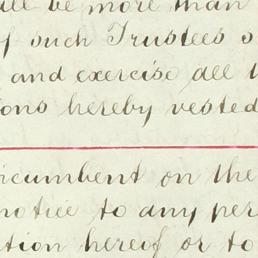 ll be more than
of such Trustees o
and exercise all t
ions hereby vested
cumbent on the
notice to any per
tion hereof or to